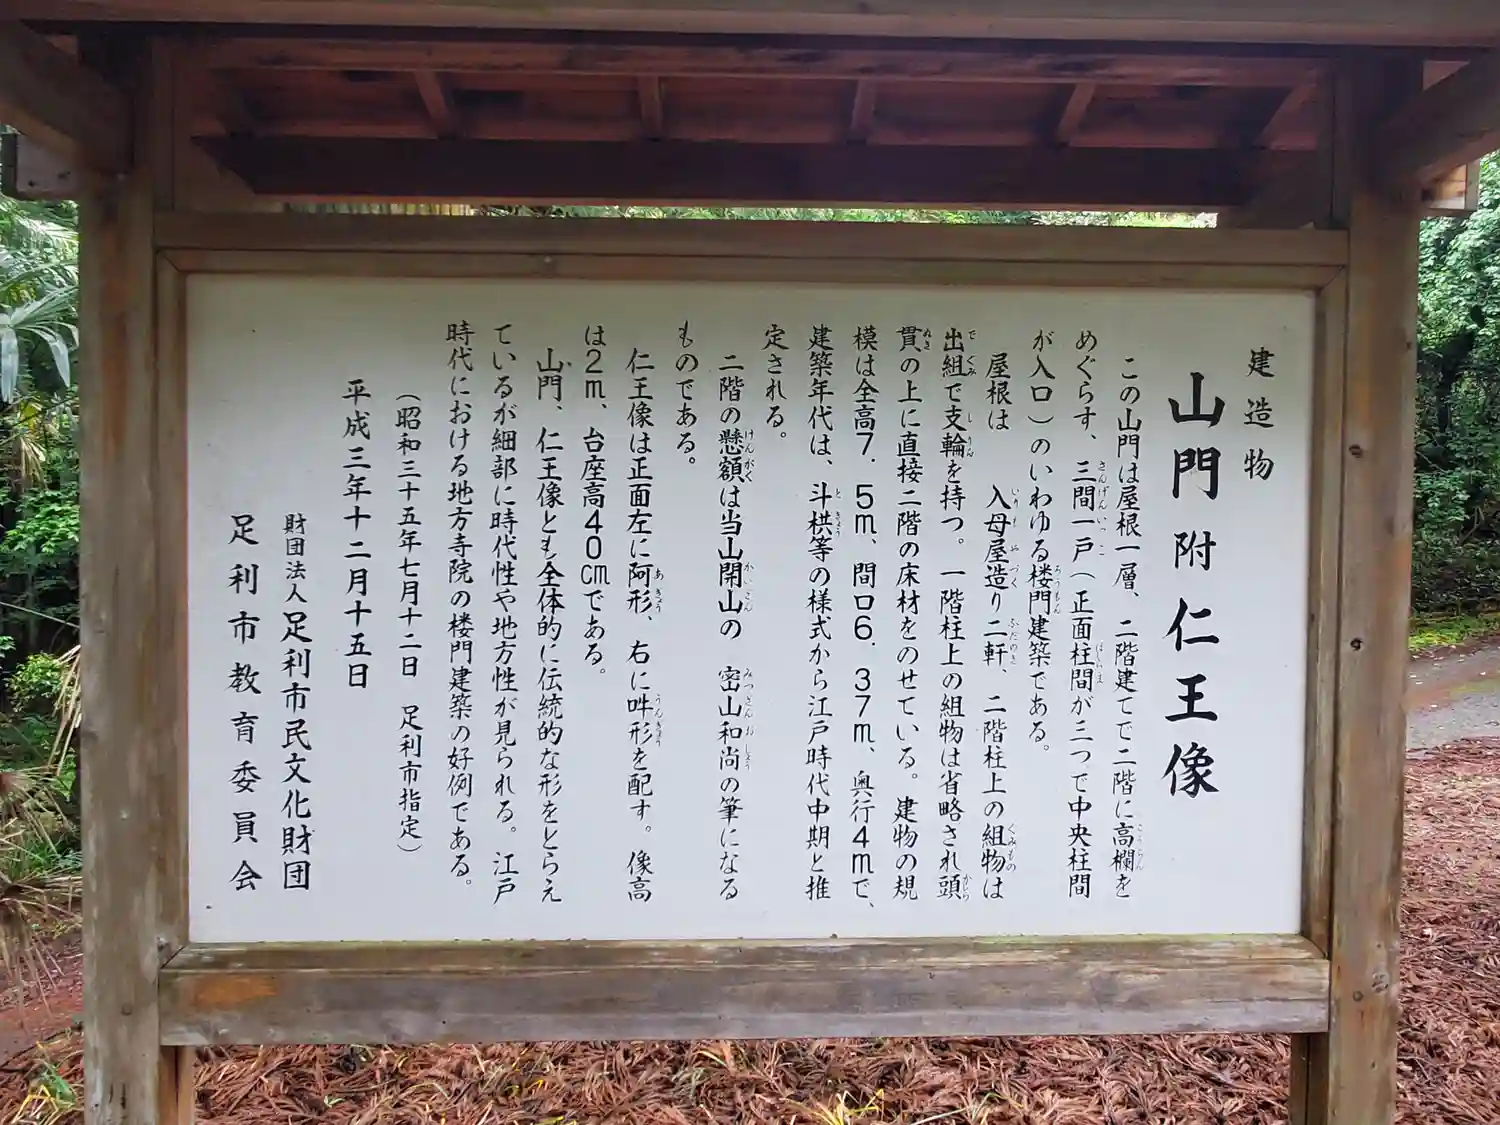 建造物
山門 附 仁王像
この山門は屋根一層、二階建てで二階に高欄を
めぐらす、三間一戸(正面柱間が三つで中央柱間
が入口)のいわゆる楼門建築である。
屋根は 入母屋造り二軒、二階柱上の組物は
出組で支輪を持つ。一階柱上の組物は省略され頭
貫の上に直接二階の床材をのせている。建物の規
模は全高7.5m、間口6.37m、奥行4mで、
建築年代は、斗栱等の様式から江戸時代中期と推
定される。
二階の懸額は当山開山の 密山和尚の筆になる
ものである。
仁王像は正面左に阿形、右に吽形を配す。像高
は2m、台座高40cmである。
山門、仁王像とも全体的に伝統的な形をとらえ
ているが細部に時代性や地方性が見られる。江戸
時代における地方寺院の楼門建築の好例である。
(昭和三十五年七月十二日 足利市指定)
平成三年十二月十五日
財団法人 足利市民文化財団
足利市教育委員会